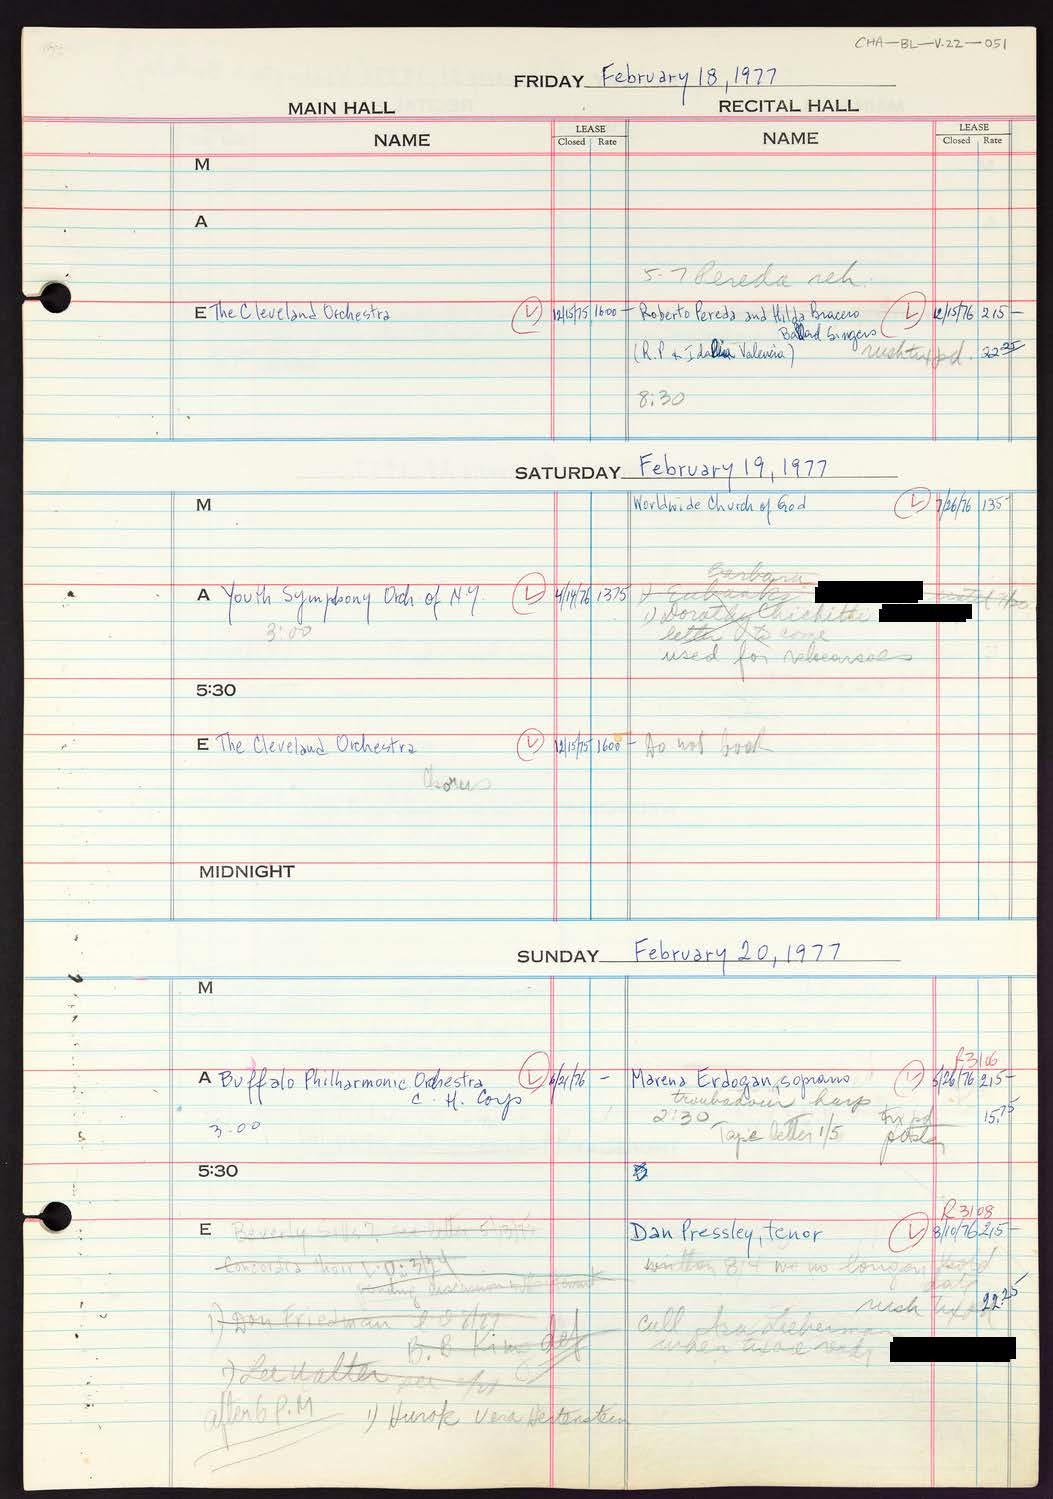 CHA-BL-V.22-051
FRIDAY February 18, 1977
MAIN HALL RECITAL HALL
NAME LEASE Closed Rate NAME LEASE Closed Rate
M
A
5-7 Pereda reh.
E The Cleveland Orchestra L 12/15/75 1600- Roberto Pereda and Hilda Bracero L 12/15/76 215-
Ballad Singers
(R.P & Idalia Valencia) rush tix pd. 22.25
8:30
SATURDAY February 19, 1977
M Worldwide Church of God L 7/26/76 135-
Barbara
A Youth Symphony Orch of N.Y. L 4/14/76 1375 1) Eubanks
3:00 1) Dorothy
letter to come
used for rehearsals
5:30
E The Cleveland Orchestra L 12/15/75 1600- Do not book
Chorus
MIDNIGHT
SUNDAY February 20, 1977
M
R3106
A Buffalo Philharmonic Orchestra L 6/21/76 - Marena Erdogan, soprano L 5/26/76 215-
C. H. Corp troubadour harp
3:00 2:30 tix pd 15.75
Tape letter 1/5
5:30
R3108
E Beverly Sills? see letter Dan Pressley, tenor L 8/10/76 215-
Concordia Choir written 8/4 we no longer hold
pending discussion date
rush tix pd 22.25
1) Don Friedman call Ira Lieberman
B.B King def when are ready
1) Lee Walter
after 6 P.M 1) Hurok Vera Hertenstein